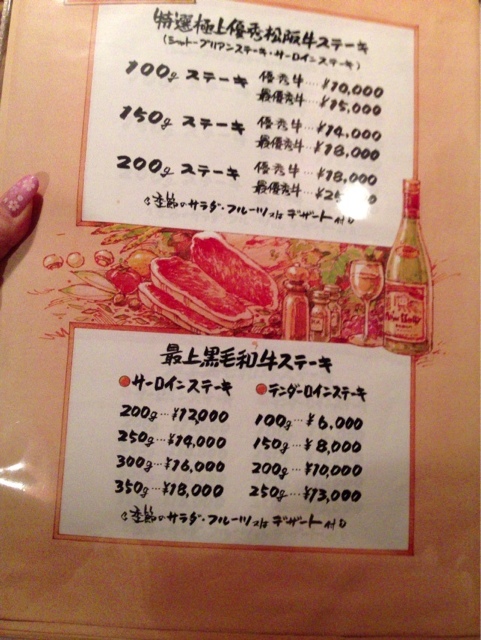 特選極上優秀松阪牛ステーキ
(シャトーブリアンステーキ・サーロインステーキ)
100g ステーキ 優秀牛…¥10,000
最優秀牛…¥15,000
150g ステーキ 優秀牛…¥14,000
最優秀牛…¥18,000
200g ステーキ 優秀牛…¥18,000
最優秀牛…
季節のサラダ・フルーツ又はデザート付
最上黒毛和牛ステーキ
●サーロインステーキ ●テンダーロインステーキ
200g…¥12,000 100g…¥6,000
250g…¥14,000 150g…¥8,000
300g…¥16,000 200g…¥10,000
350g…¥18,000 250g…¥13,000
季節のサラダ・フルーツ又はデザート付